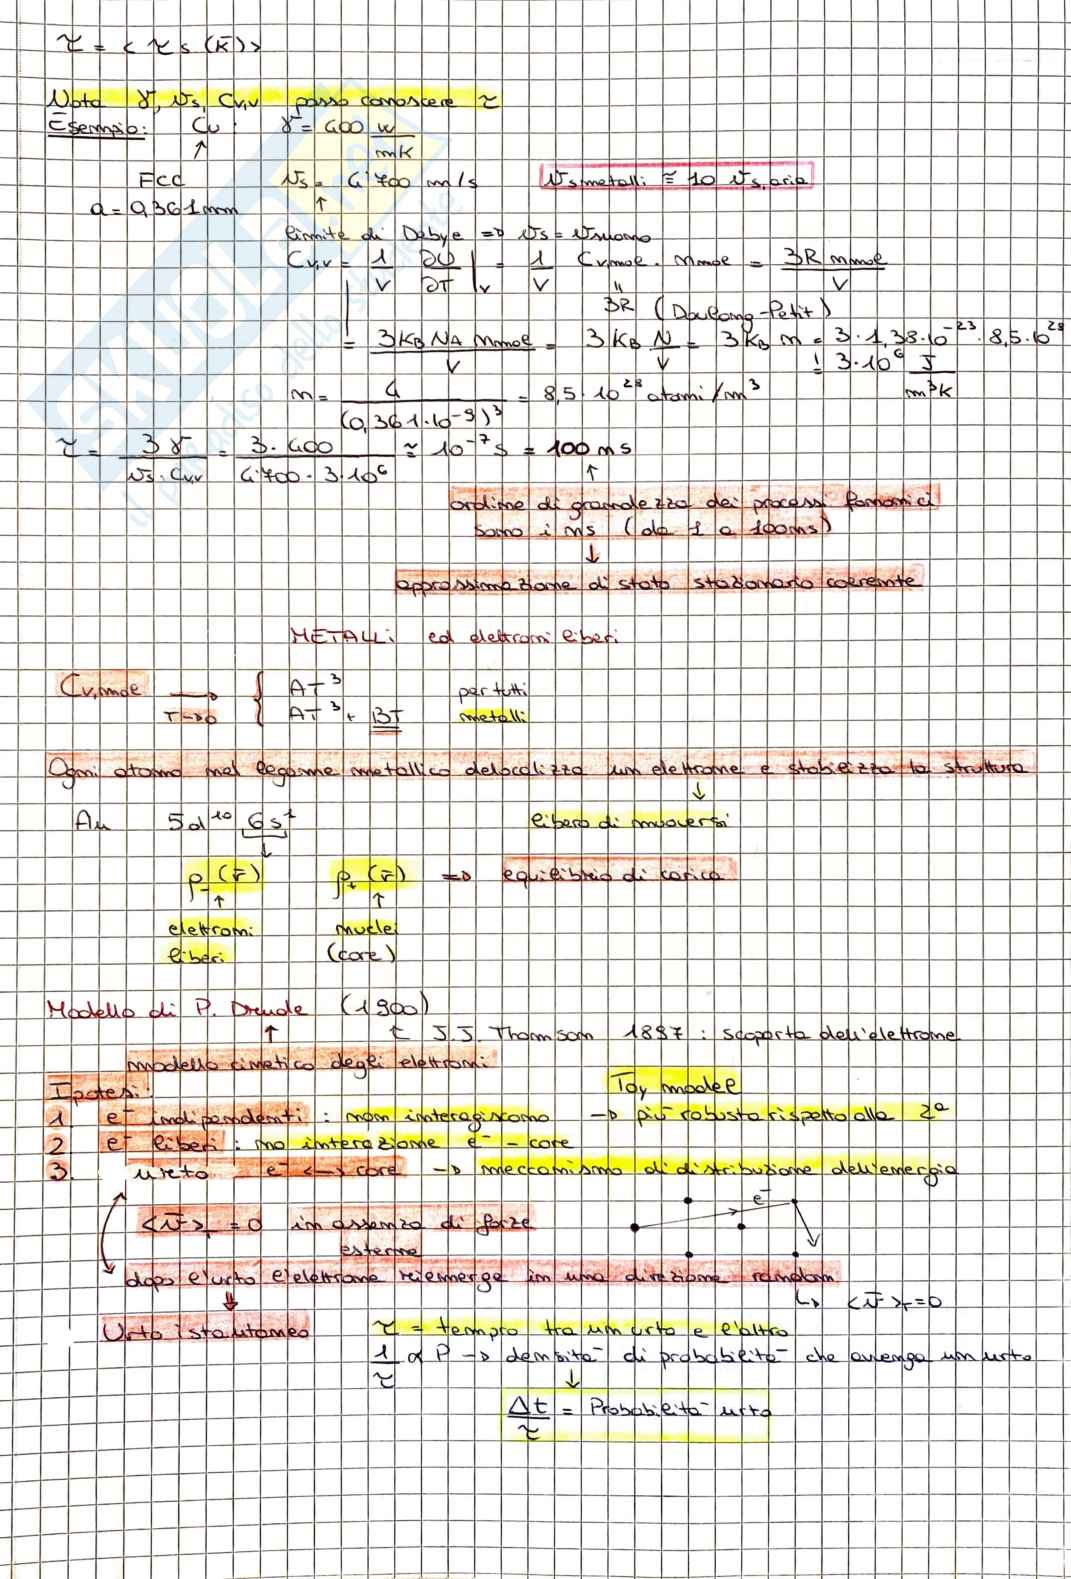 τ = < τs (k̄) >
Nota γ, vs, Cv,v posso conoscere τ
Esempio: Cu : γ = 400 W/mK
↑
FCC vs = 4'700 m/s vs,metalli ≅ 10 vs,aria
a = 0,361 nm ↑
limite di Debye => vs = vsuono
Cv,v = 1/V ∂U/∂T |v = 1/V Cv,mol · nmol = 3R nmol / V
" 3R (Doulong-Petit)
= 3KB NA nmol / V = 3KB N/V = 3KB n = 3 · 1,38·10⁻²³ · 8,5·10²⁸
= 3·10⁶ J/m³K
n = 4/(0,361·10⁻⁹)³ = 8,5·10²⁸ atomi/m³
τ = 3γ/(vs·Cv,v) = 3·400/(4'700·3·10⁶) ≅ 10⁻⁷ s = 100 ns
↑
ordine di grandezza dei processi fononici
sono i ns (da 1 a 100ns)
↓
approssimazione di stato stazionario coerente
METALLi ed elettroni liberi
Cv,mol → T→0 { AT³ per tutti
AT³ + BT metalli
Ogni atomo nel legame metallico delocalizza un elettrone e stabilizza la struttura
↓
Au 5d¹⁰ 6s¹ libero di muoversi
↓
ρ₋(r̄) ρ₊(r̄) => equilibrio di carica
↑ ↑
elettroni nuclei
liberi (core)
Modello di P. Drude (1900)
↑ ↑ J.J. Thomson 1897 : scoperta dell'elettrone
modello cinetico degli elettroni
Ipotesi: Toy model
1 e⁻ indipendenti : non interagiscono → più robusta rispetto alla 2ª
2 e⁻ liberi : no interazione e⁻ - core
3. urto e⁻ <-> core → meccanismo di distribuzione dell'energia
e⁻
<v̄>T = 0 in assenza di forze
esterne
dopo l'urto l'elettrone riemerge in una direzione random
↳ <v̄>T = 0
Urto istantaneo τ = tempo tra un urto e l'altro
1/τ ∝ P → densità di probabilità che avvenga un urto
↓
Δt/τ = Probabilità urto